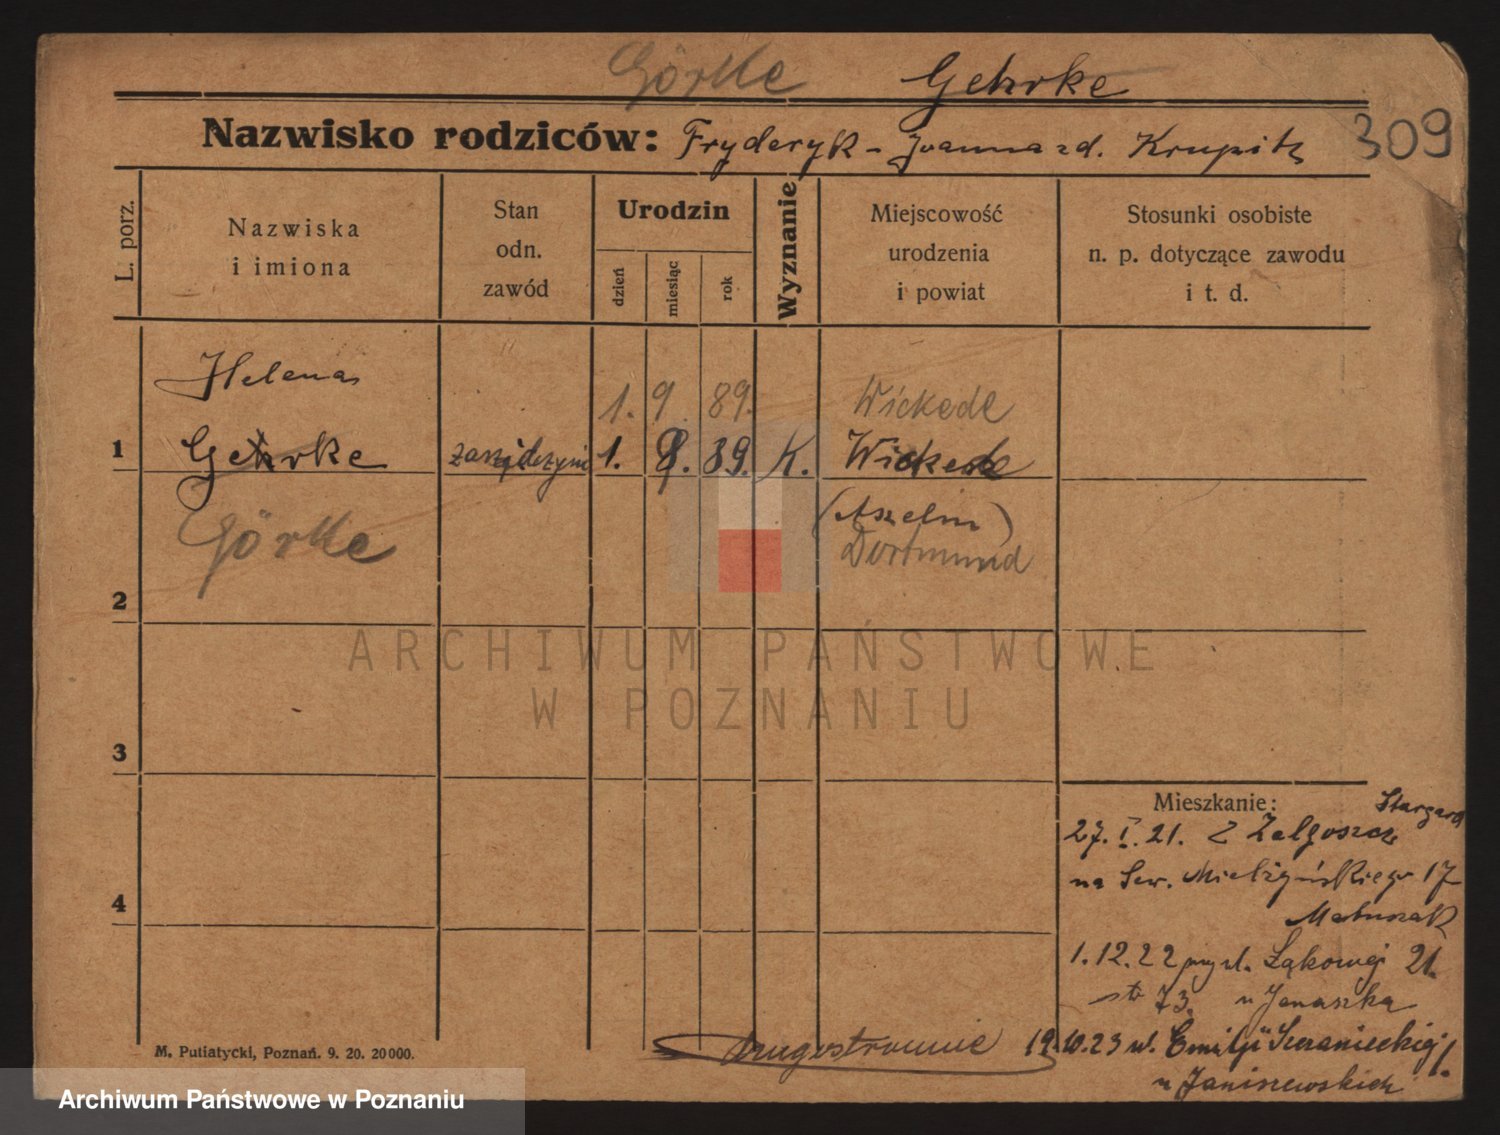 Görke Gehrke
Nazwisko rodziców: Fryderyk - Joanna zd. Krupitz
309
L. porz.
Nazwiska
i imiona
Stan
odn.
zawód
Urodzin
dzień
miesiąc
rok
Wyznanie
Miejscowość
urodzenia
i powiat
Stosunki osobiste
n. p. dotyczące zawodu
i t. d.
Helena
1. 9 89. Wickede
1 Gehrke 1. 9. 89. K. Wickede
Görke
Dortmund
2
ARCHIWUM PAŃSTWOWE
W POZNANIU
3
Mieszkanie: Stargard
27. I. 21. Z Zelgoszcz
na Sew. Mielżyńskiego 17
Matuszak
4
1.12.22 Łąkowej 21.
73. u Janaszka
19.10.23 ul. Emilji Sczanieckiej 1.
u Janiszewskich
M. Putiatycki, Poznań. 9. 20. 20000.
Archiwum Państwowe w Poznaniu